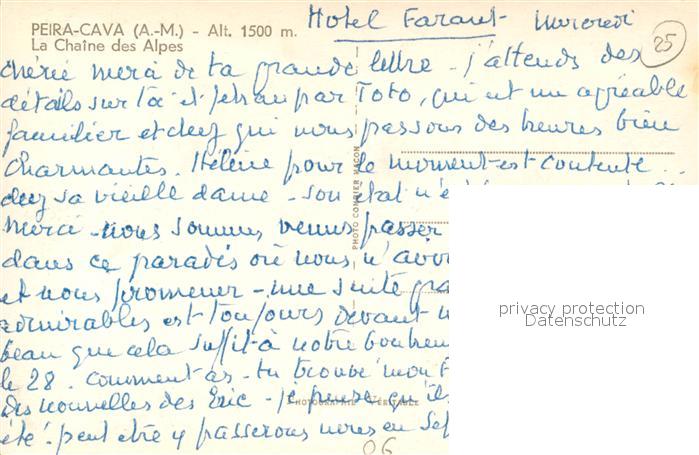 PEIRA-CAVA (A.-M.) - Alt. 1500 m.
La Chaîne des Alpes
Hotel Faraut Mercredi
25
chérie merci de ta grande lettre - j'attends des
détails sur toi et Jehan par Toto, qui est un agréable
familier et chez qui nous passons des heures bien
charmantes. Hélène pour le moment est contente
chez sa vieille dame - son état n'est
merci - nous sommes venus passer
dans ce paradis où nous n'avon
et nous promener - une suite gra
admirables est toujours devant n
beau que cela suffit à notre bonheur
le 28. comment as-tu trouvé mon
des nouvelles des Eric - je pense qu'ils
été! peut être y passerons nous en Sep
PHOTO COMBIER MACON
PHOTOGRAPHIE VÉRITABLE
privacy protection
Datenschutz
06